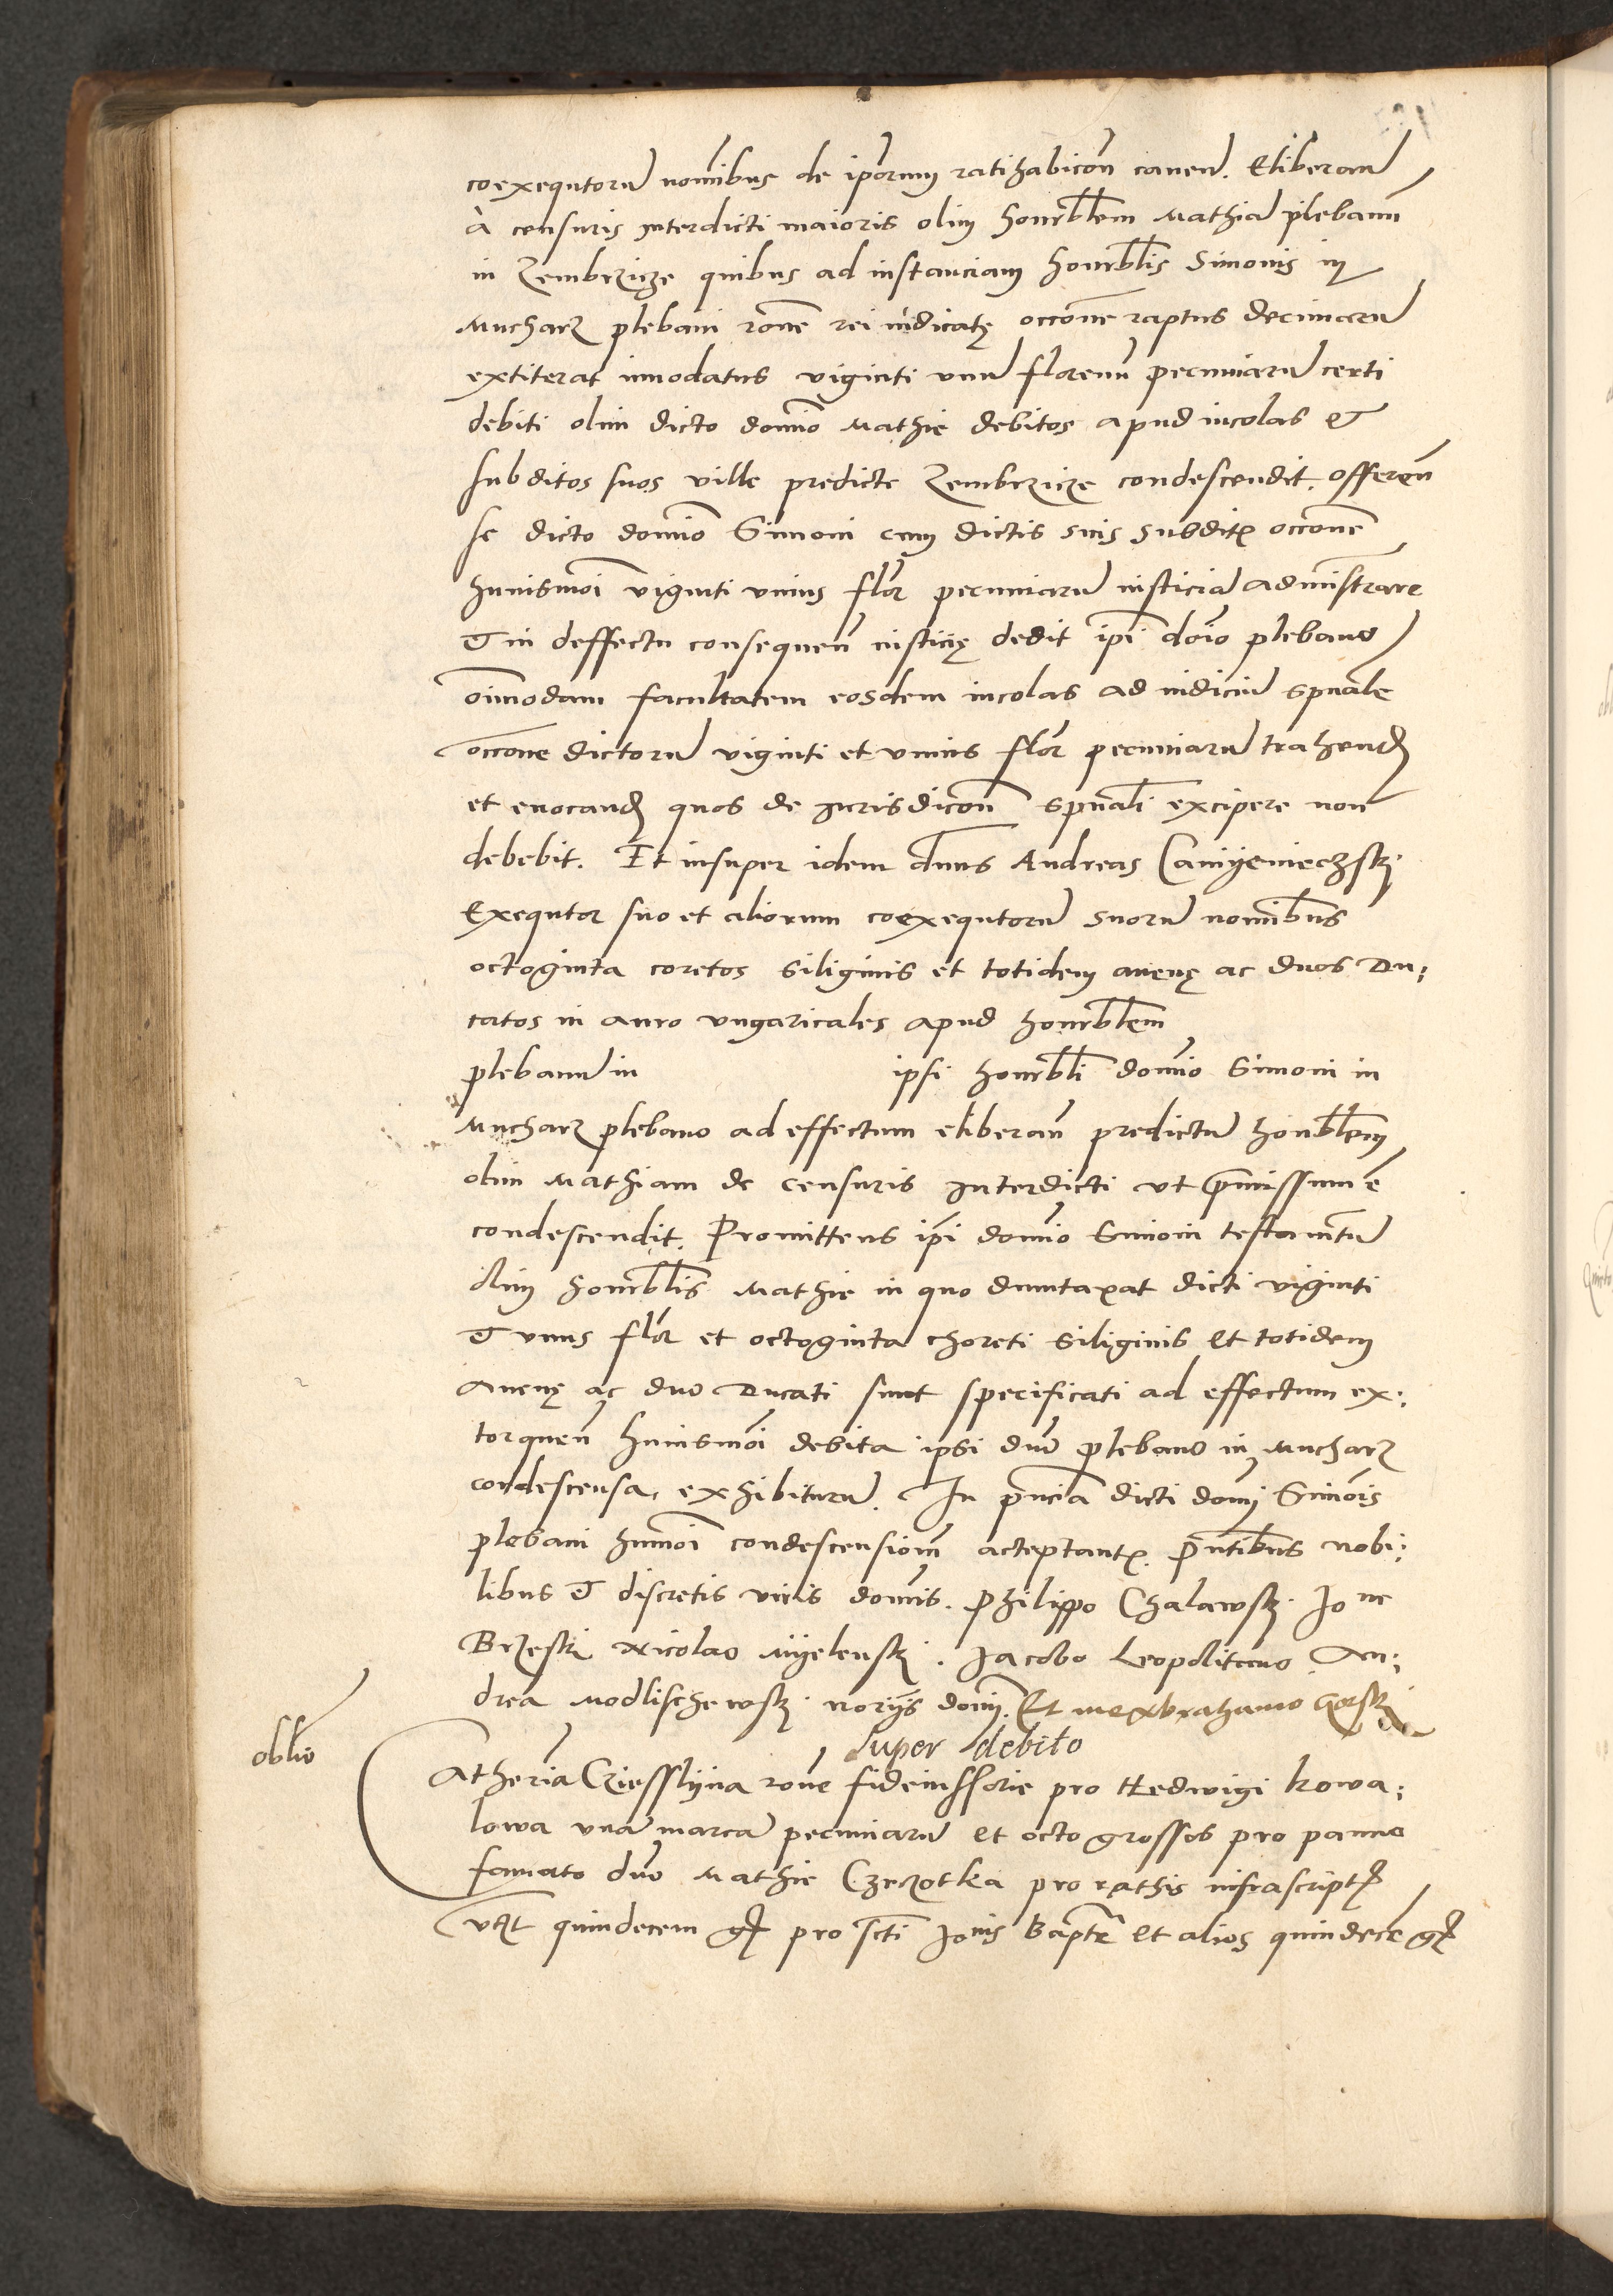 coexequtoru nomibus de ipsorum ratihabicon caven. Eliberan
à censuris interdicti maioris olim honorblem Mathia plebanu
in Zembrzicze quibus ad instanciam honorblis Simonis in
Mucharz plebani rone rei iudicatę occone raptus decimaru
extiterat innodatus viginti unu florenu pecuniaru certi
debiti olim dicto domino Mathie debitos apud incolas et
subditos suos ville predicte Zembrzicze condescendit. offeren
se dicto domino Simoni cum dictis suis subdit occone
huiusmoi viginti unius flor pecuniaru iusticia administrare
Et in deffectu consequen iusticię dedit ipi doio plebano
oimodam facultatem eosdem incolas ad iudiciu spuale
occone dictoru viginti et unius flor pecuniaru trahend
et evocand quos de Jurisdicon spuali excipere non
debebit. Et insuper idem dnus Andreas Camyenieczski
Exequtor suo et aliorum coexequtoru suoru nomibus
octoginta coretos siliginis et totidem avenę ac duos Du:
catos in auro ungaricales apud honorblem
plebanu in ipsi honorbli domino Simoni in
Mucharz plebano ad effectum eliberan predictu honorblem
olim Mathiam de censuris Interdicti ut pmissum e
condescendit. Promittens ipi domino Simoni testamentu
olim honorblis Mathie in quo duntaxat dicti viginti
Et unus flor et octoginta choreti siliginis et totidem
avenę ac duo Ducati sunt specificati ad effectum ex:
torquen huiusmoi debita ipsi dno plebano in Mucharz
condescensa, exhibituru. In pncia dicti domi Simois
plebani humoi condescensiom acceptant. Pntibus nobi:
libus Et discretis viris domis. Philippo Chalawski. Jone
Brzeski Nicolao Myelenski. Jacobo Leopolitano. An:
drea Modlischewski. noriis domi. Et me Abrahamo Gorski
oblio
Super debito
Atheria Cziesslyna rone fideiussorie pro Hedwigi Kowa:
lowa una marca pecuniaru et octo grossos pro panno
famato dno Mathie Czeczotka pro rathis infrascript
vz quindecem gr pro scti Jonis Bapte et alios quindece gr